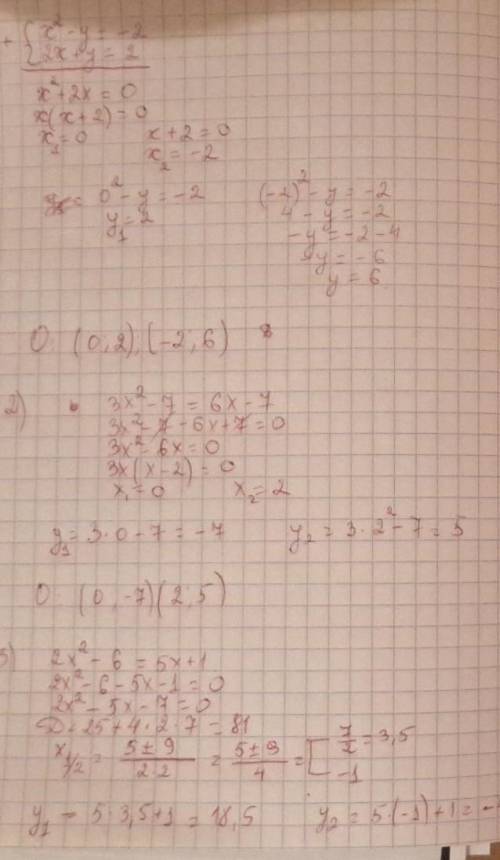 + { x² - y = -2
2x + y = 2
x² + 2x = 0
x(x + 2) = 0
x₁ = 0 x + 2 = 0
x₂ = -2
0² - y = -2 (-2)² - y = -2
y₁ = 2 4 - y = -2
-y = -2 - 4
-y = -6
y = 6
O: (0; 2), (-2; 6)
2) 3x² - 7 = 6x - 7
3x² - 7 - 6x + 7 = 0
3x² - 6x = 0
3x(x - 2) = 0
x₁ = 0 x₂ = 2
y₁ = 3 · 0 - 7 = -7 y₂ = 3 · 2² - 7 = 5
O: (0; -7) (2; 5)
3) 2x² - 6 = 5x + 1
2x² - 6 - 5x - 1 = 0
2x² - 5x - 7 = 0
D = 25 + 4 · 2 · 7 = 81
x₁/₂ = (5 ± 9)/(2·2) = (5 ± 9)/4 = [ 7/2 = 3,5
-1
y₁ = 5 · 3,5 + 1 = 18,5 y₂ = 5 · (-1) + 1 = -